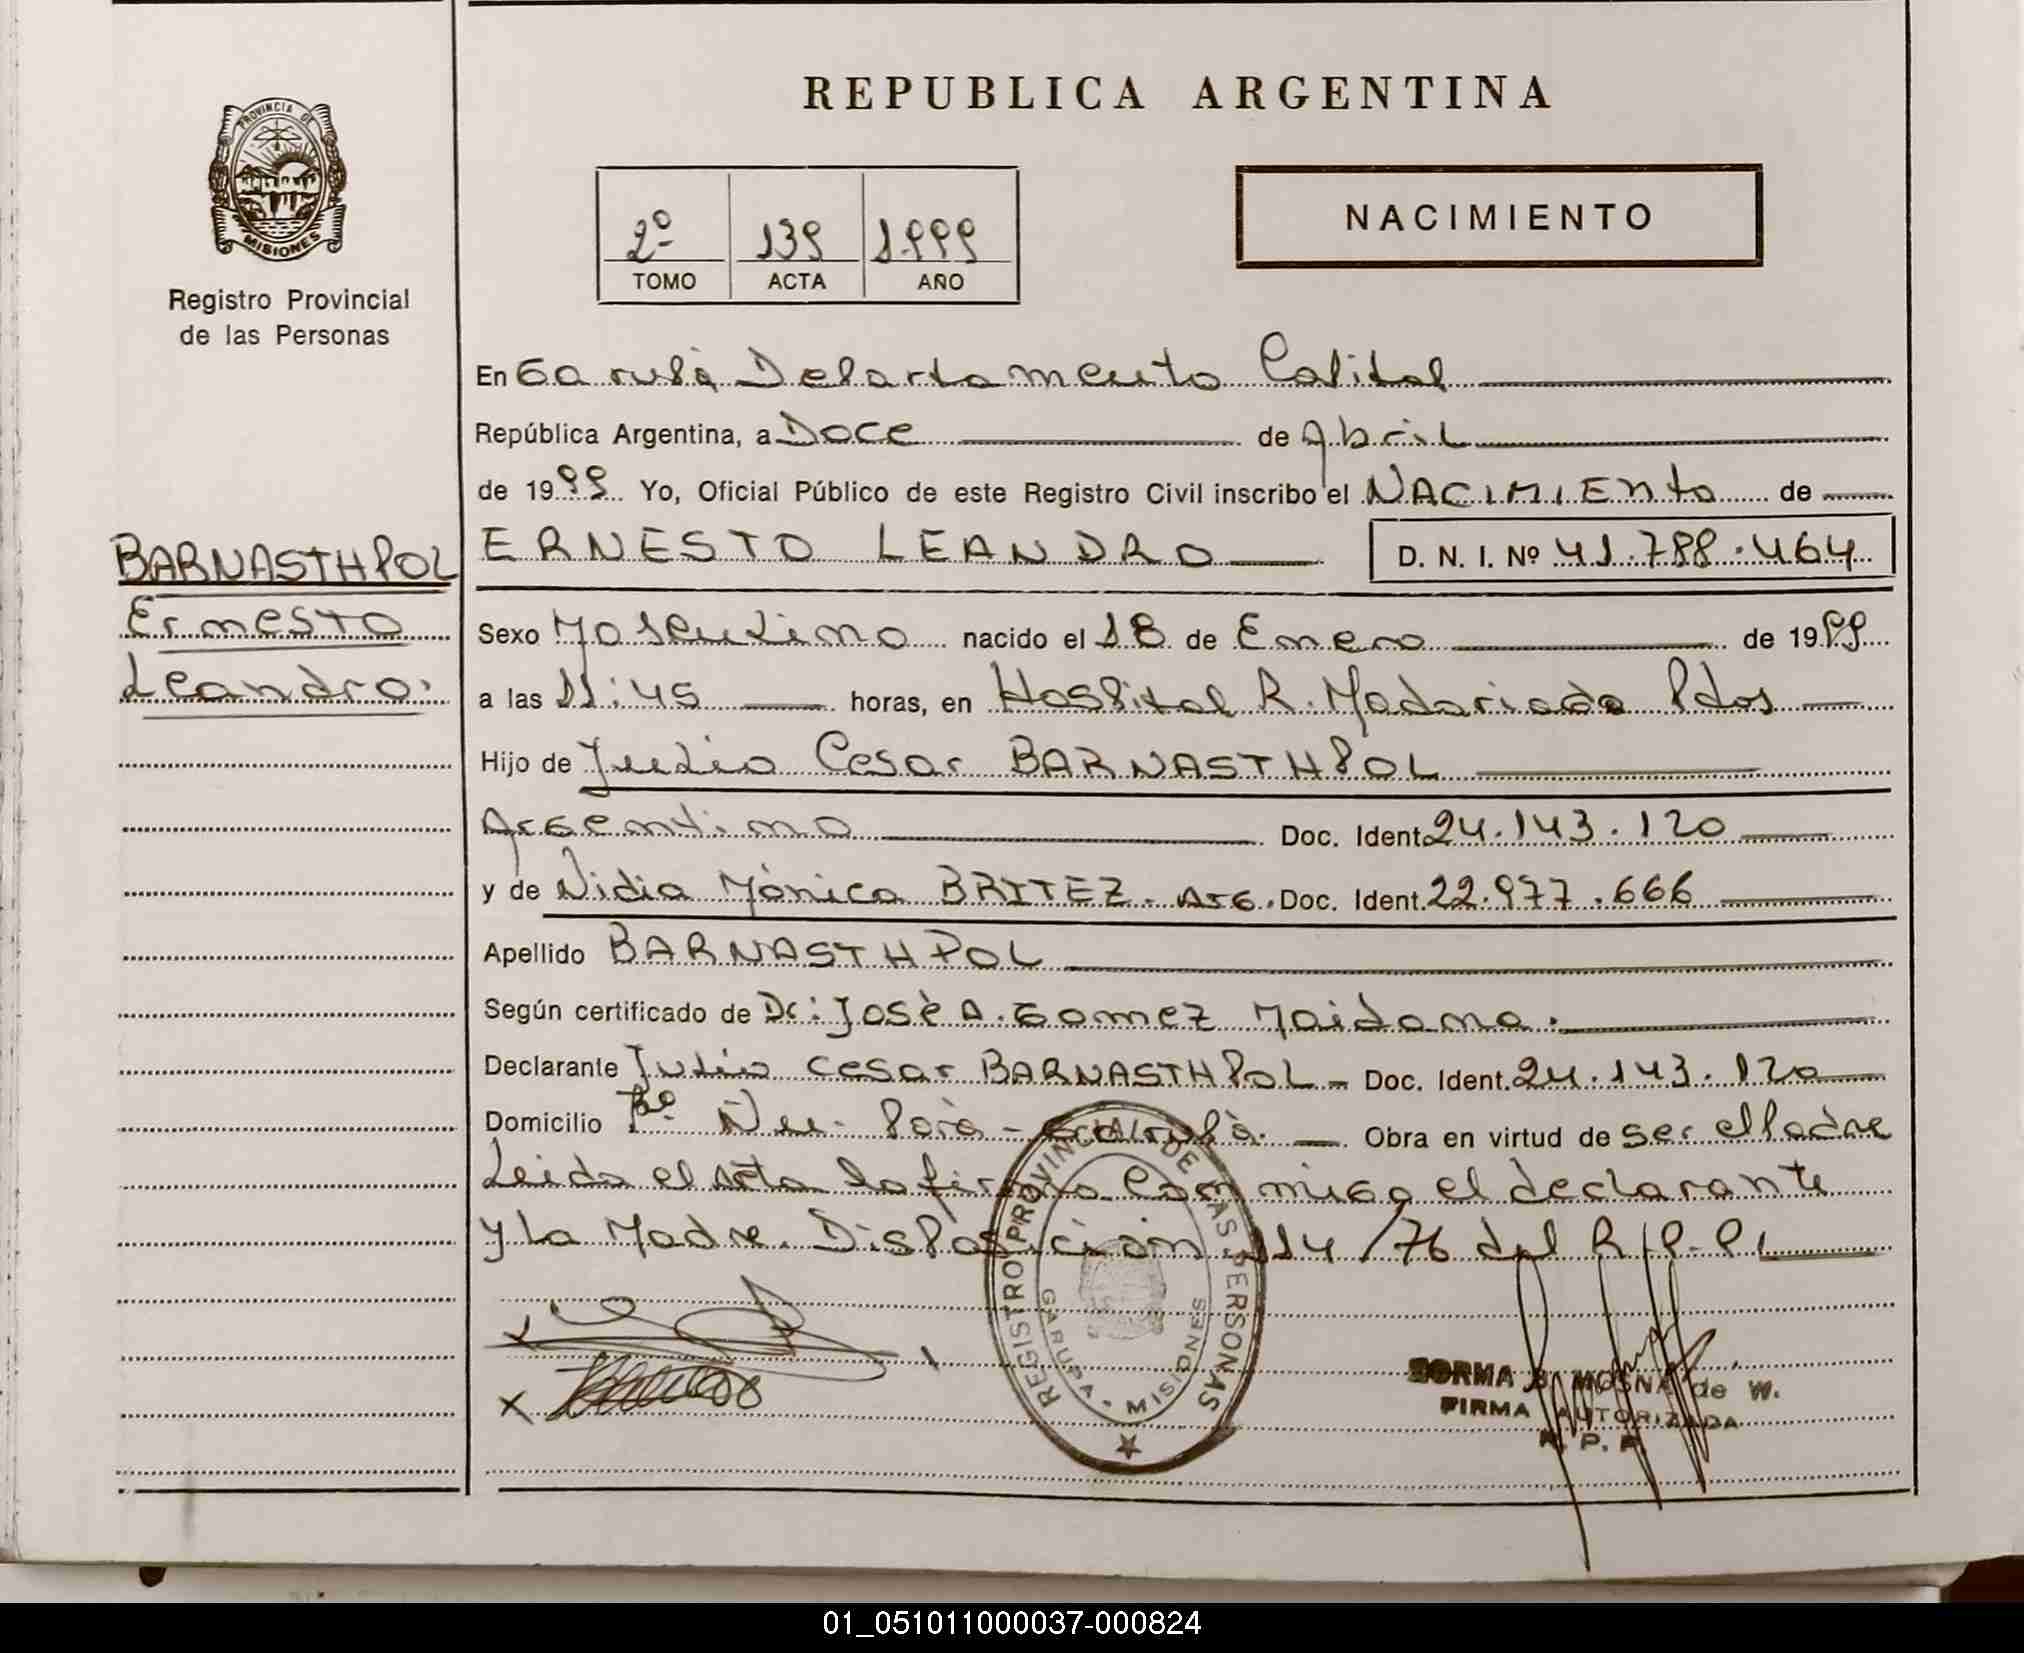 REPUBLICA ARGENTINA
PROVINCIA DE
MISIONES
Registro Provincial
de las Personas
2º 139 1999
TOMO ACTA AÑO
NACIMIENTO
En Garupá Departamento Capital
República Argentina, a Doce de Abril
de 1999 Yo, Oficial Público de este Registro Civil inscribo el NACIMIENTO de
BARNASTHPOL
Ernesto
Leandro.
ERNESTO LEANDRO D. N. I. Nº 41.788.464
Sexo Masculino nacido el 18 de Enero de 1999
a las 11:45 horas, en Hospital R. Madariaga Pdas
Hijo de Julio Cesar BARNASTHPOL
Argentino Doc. Ident. 24.143.120
y de Nidia Mónica BRITEZ. Arg. Doc. Ident. 22.977.666
Apellido BARNASTHPOL
Según certificado de Dr: José A. Gomez Maidana.
Declarante Julio Cesar BARNASTHPOL - Doc. Ident. 24.143.120
Domicilio Bº Ñu Porá - Garupá. Obra en virtud de ser el Padre
Leida el acta la firma conmigo el declarante
y la Madre. Disposición 114/76 del R.P.P.
REGISTRO PROVINCIAL DE LAS PERSONAS
GARUPA - MISIONES
MOSNA de W.
FIRMA AUTORIZADA
R. P. P.
01_051011000037-000824